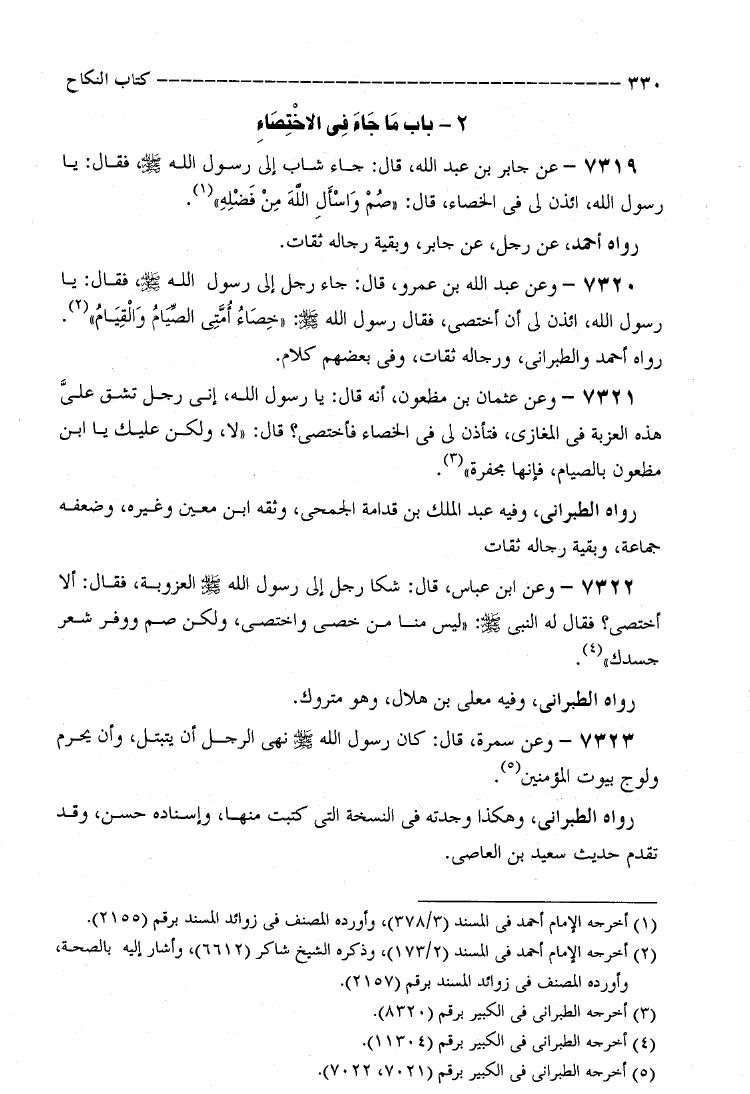 ٣٣٠ ------------------------------------- كتاب النكاح
٢ - باب مَا جَاءَ فِى الاخْتِصَاءِ
٧٣١٩ - عن جابر بن عبد الله، قال: جاء شاب إلى رسول الله ﷺ، فقال: يا
رسول الله، ائذن لى فى الخصاء، قال: «صُمْ وَاسْأَلِ اللَّهَ مِنْ فَضْلِهِ»(١).
رواه أحمد، عن رجل، عن جابر، وبقية رجاله ثقات.
٧٣٢٠ - وعن عبد الله بن عمرو، قال: جاء رجل إلى رسول الله ﷺ، فقال: يا
رسول الله، ائذن لى أن أختصى، فقال رسول الله ﷺ: «خِصَاءُ أُمَّتِى الصِّيَامُ وَالْقِيَامُ»(٢).
رواه أحمد والطبرانى، ورجاله ثقات، وفى بعضهم كلام.
٧٣٢١ - وعن عثمان بن مظعون، أنه قال: يا رسول الله، إنى رجل تشق علىَّ
هذه العزبة فى المغازى، فتأذن لى فى الخصاء فأختصى؟ قال: «لا، ولكن عليك يا ابن
مظعون بالصيام، فإنها مجفرة»(٣).
رواه الطبرانى، وفيه عبد الملك بن قدامة الجمحى، وثقه ابن معين وغيره، وضعفه
جماعة، وبقية رجاله ثقات
٧٣٢٢ - وعن ابن عباس، قال: شكا رجل إلى رسول الله ﷺ العزوبة، فقال: ألا
أختصى؟ فقال له النبى ﷺ: «ليس منا من خصى واختصى، ولكن صم ووفر شعر
جسدك»(٤).
رواه الطبرانى، وفيه معلى بن هلال، وهو متروك.
٧٣٢٣ - وعن سمرة، قال: كان رسول الله ﷺ نهى الرجل أن يتبتل، وأن يحرم
ولوج بيوت المؤمنين(٥).
رواه الطبرانى، وهكذا وجدته فى النسخة التى كتبت منها، وإسناده حسن، وقد
تقدم حديث سعيد بن العاصى.
(١) أخرجه الإمام أحمد فى المسند (٣٧٨/٣)، وأورده المصنف فى زوائد المسند برقم (٢١٥٥).
(٢) أخرجه الإمام أحمد فى المسند (١٧٣/٢)، وذكره الشيخ شاكر (٦٦١٢)، وأشار إليه بالصحة،
وأورده المصنف فى زوائد المسند برقم (٢١٥٧).
(٣) أخرجه الطبرانى فى الكبير برقم (٨٣٢٠).
(٤) أخرجه الطبرانى فى الكبير برقم (١١٣٠٤).
(٥) أخرجه الطبرانى فى الكبير برقم (٧٠٢١، ٧٠٢٢).